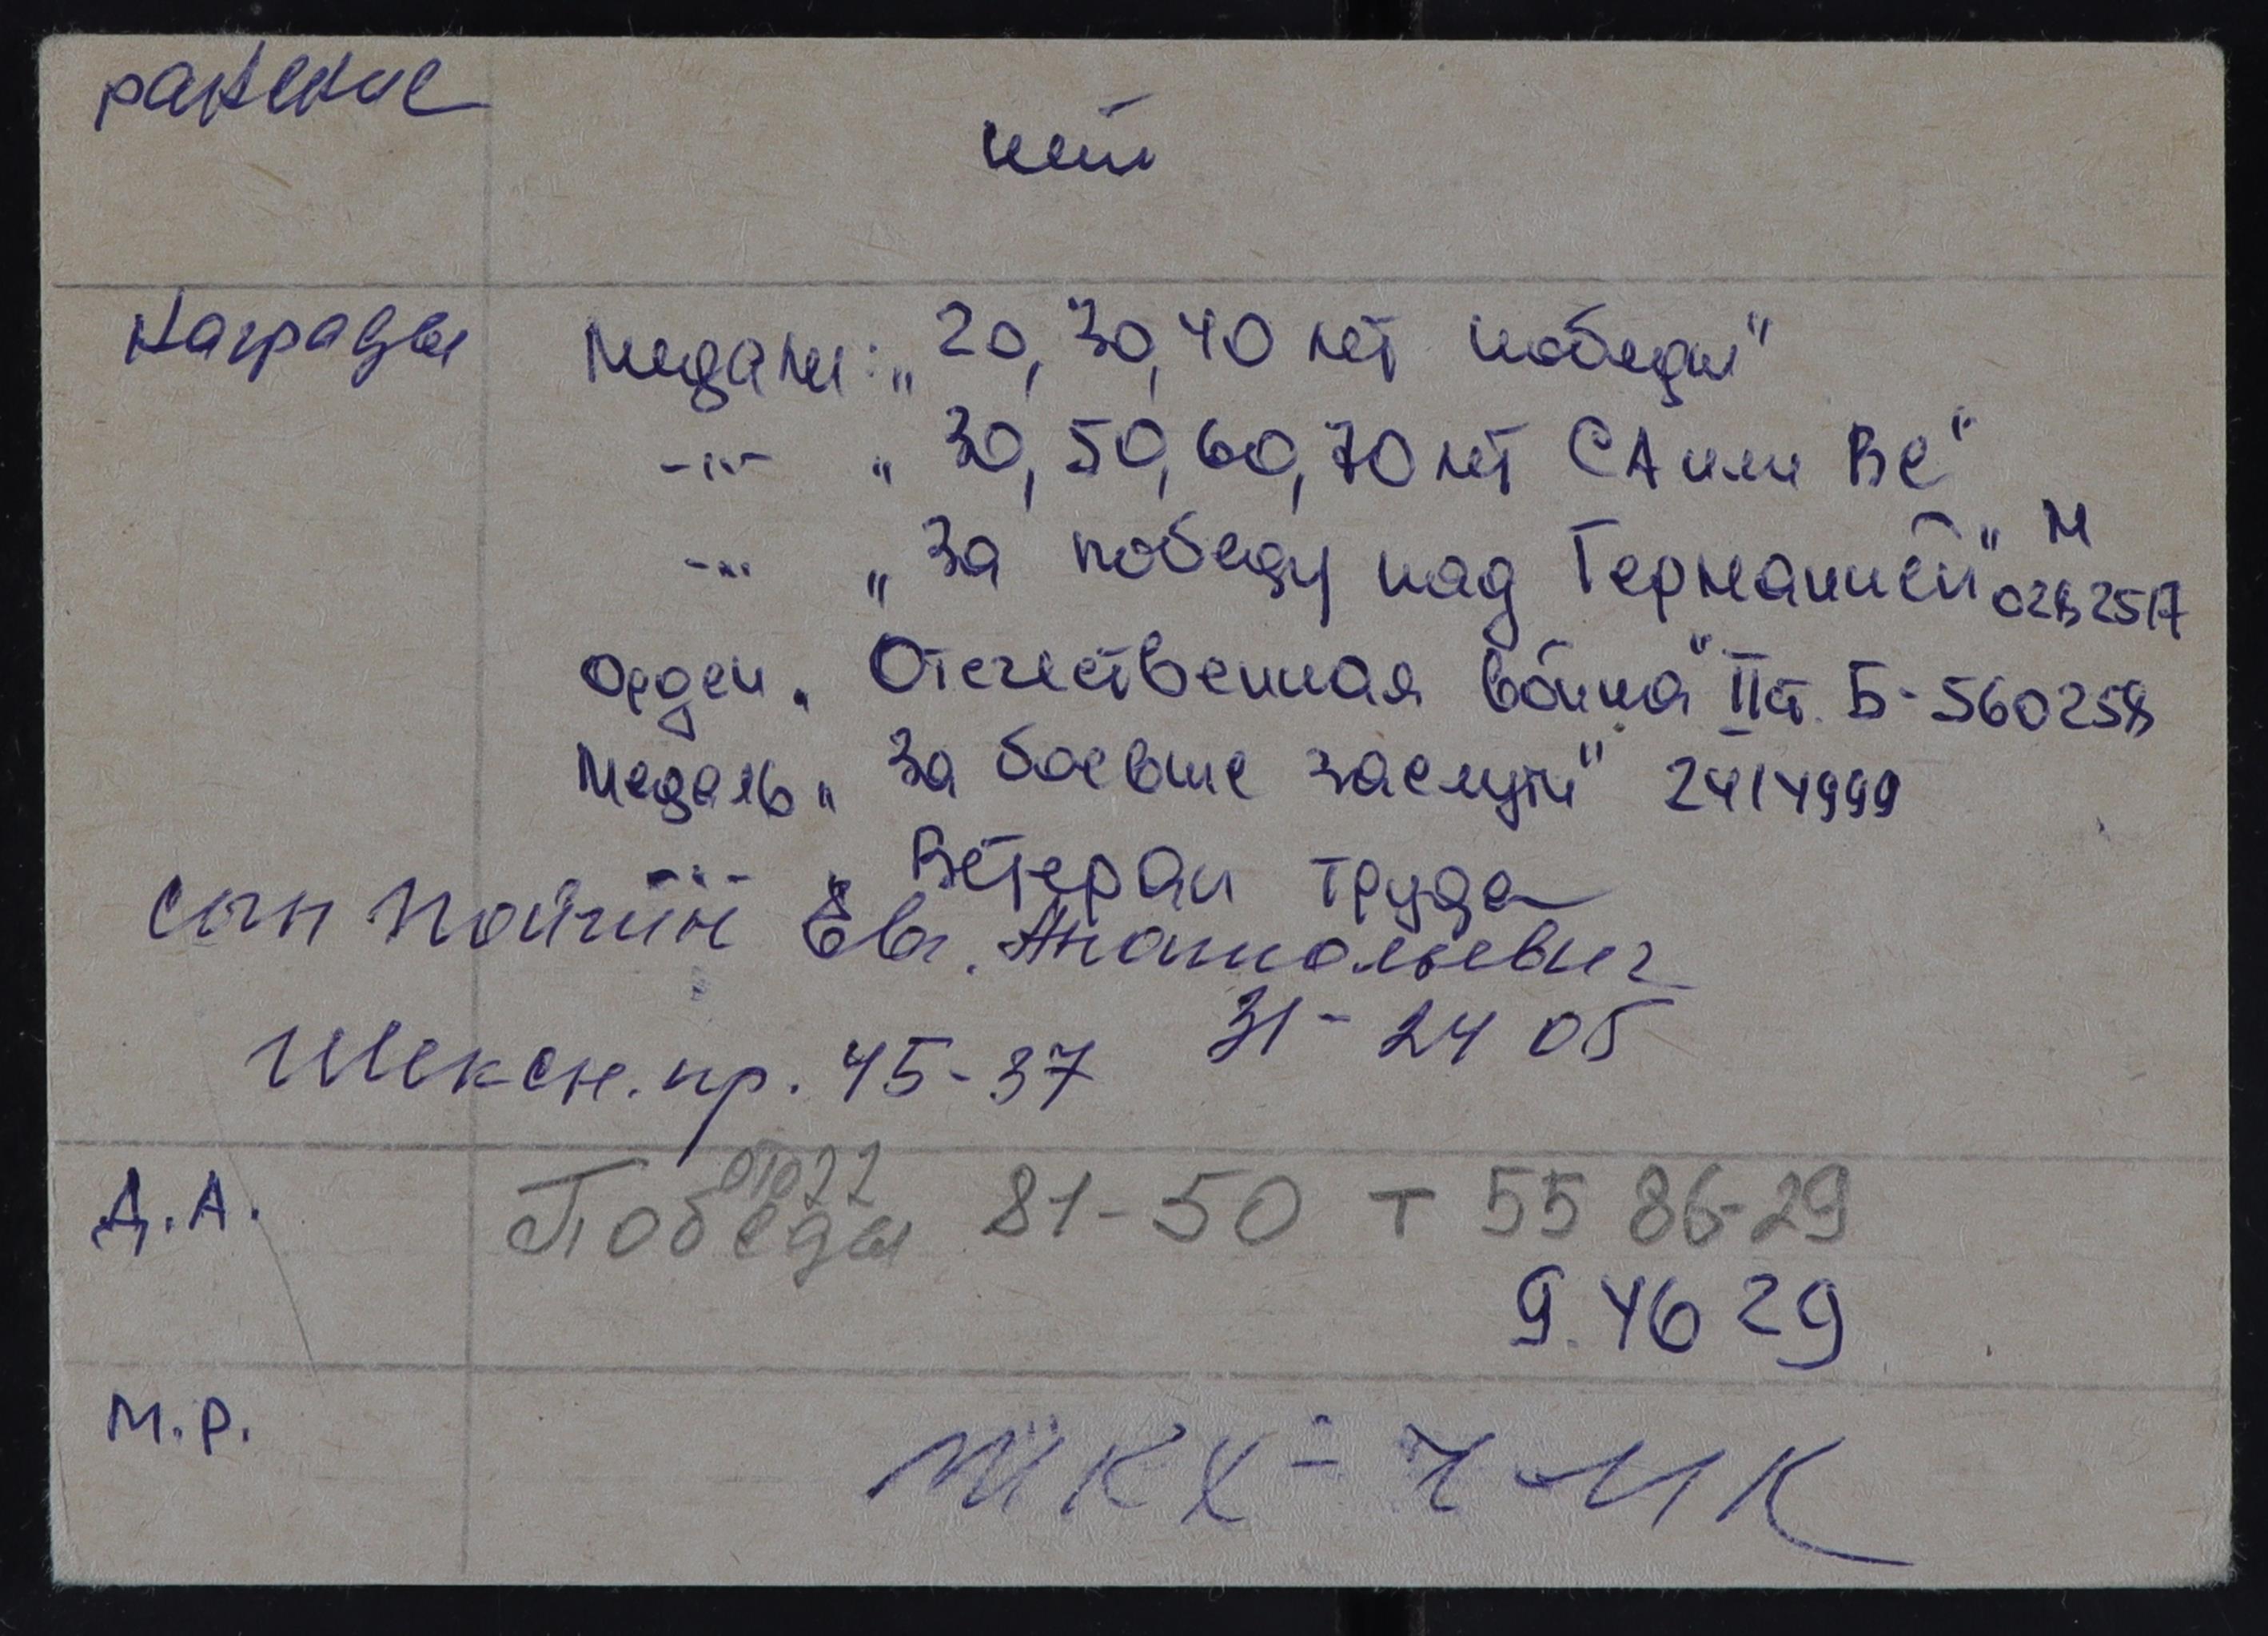 ранение
нет
Награды Медали: „20, 30, 40 лет победы"
-"- „30, 50, 60, 70 лет СА или ВС"
-"- „За победу над Германией" М
Орден „Отечественная война" II ст. Б-560258
Медаль „За боевые заслуги" 2414999
-"- „Ветеран труда
сын Евг. Анатольевич
31-24 05
Шексн. пр. 45-37
Д.А. Победы 81-50 т 55 86-29
9.46 29
М.Р.